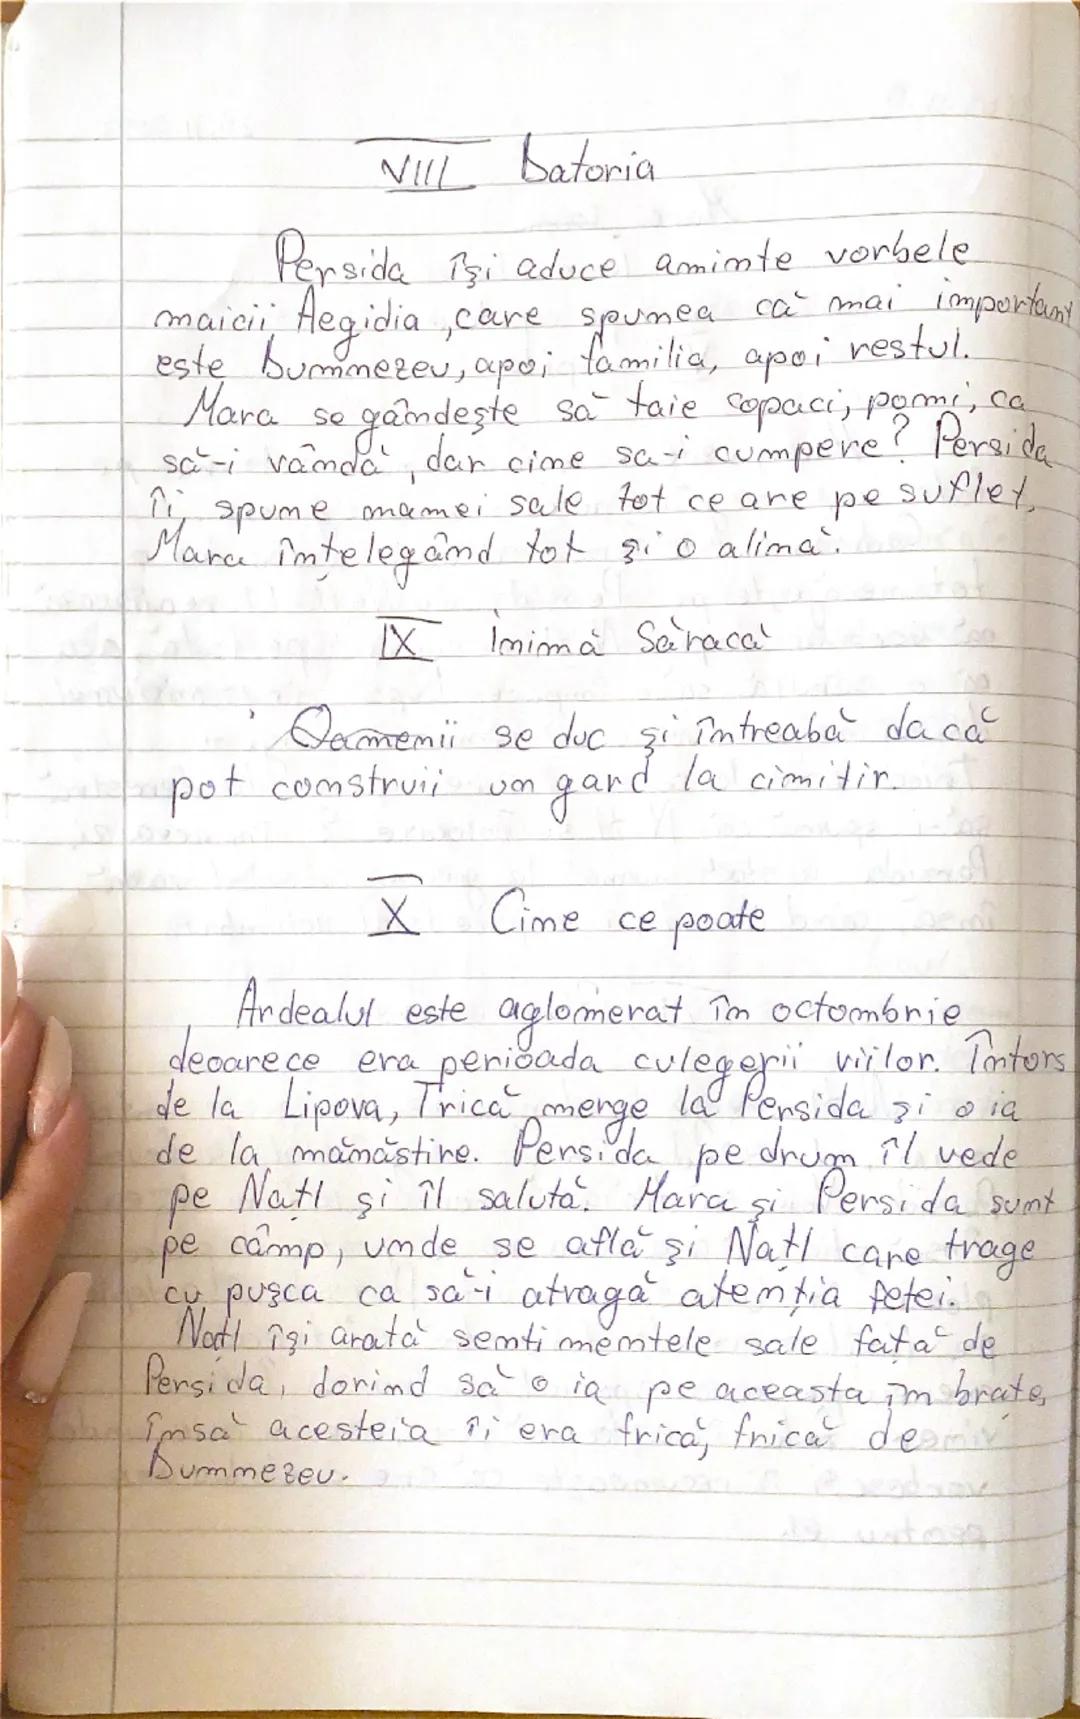 VIII Datoria
Persida își aduce aminte vorbele
maicii Aegidia, care spunea că mai important
este Dumnezeu, apoi familia, apoi restul.
Mara se gândește să taie copaci, pomi, ca
să-i vândă, dar cine sa-i cumpere? Persida
îi spune mamei sale tot ce are pe suflet,
Mara înțelegând tot și o alină.
IX Inimă Săracă
Oamenii se duc și întreabă dacă
pot construii un gard la cimitir.
X Cine ce poate
Ardealul este aglomerat în octombrie
deoarece era perioada culegerii viilor. Întors
de la Lipova, Trică merge la Persida și o ia
de la mănăstire. Persida, pe drum îl vede
pe Națl și îl salută. Mara și Persida sunt
pe câmp, unde se află și Națl care trage
cu pușca ca să-i atragă atenția fetei.
Națl își arată sentimentele sale față de
Persida, dorind să o ia pe aceasta în brațe,
însă acesteia îi era frică, frică de
Dumnezeu.